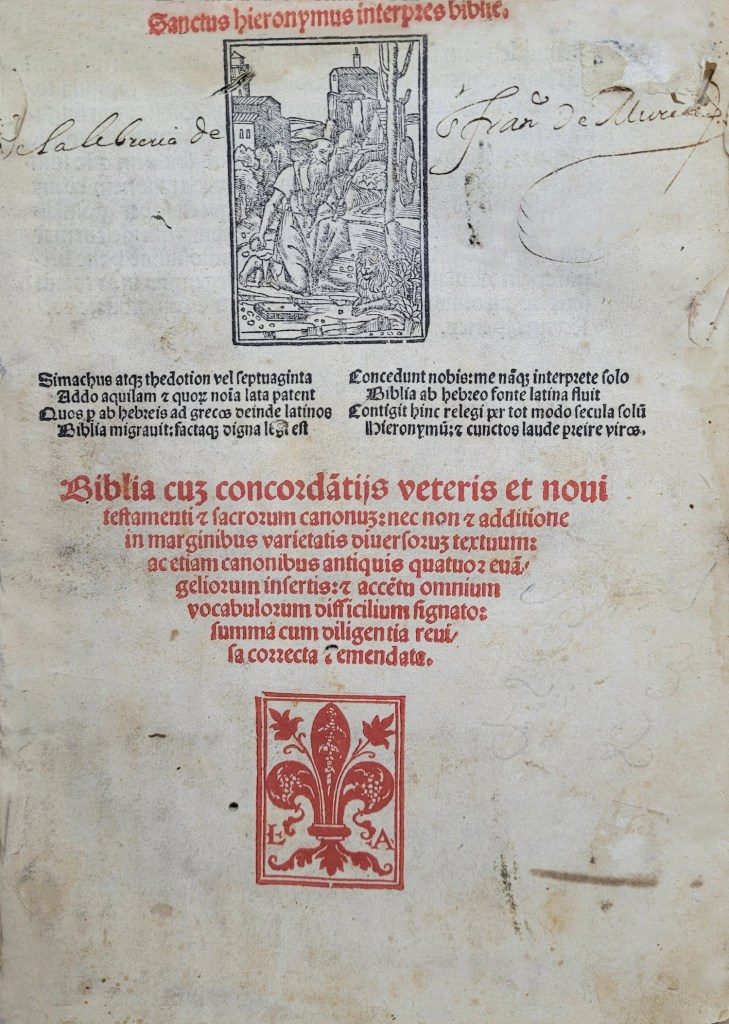 Sanctus hieronymus interpres biblie.
de la libreria de
fr Franco de Murcia
Simachus atqꝫ thedotion vel septuaginta
Addo aquilam ⁊ quoꝝ noīa lata patent
Quos ꝑ ab hebreis ad grecos deinde latinos
Biblia migravit: factaqꝫ digna legi est
Concedunt nobis: me nāqꝫ interprete solo
Biblia ab hebreo fonte latina fluit
Contigit hinc relegi per tot modo secula solū
Hieronymū: ⁊ cunctos laude preire viros.
Biblia cuꝫ concordātijs veteris et noui
testamenti ⁊ sacrorum canonuꝫ: nec non ⁊ additione
in marginibus varietatis diuersoruꝫ textuum:
ac etiam canonibus antiquis quatuor euā/
geliorum insertis: ⁊ accētu omnium
vocabulorum difficilium signato:
summa cum diligentia reui/
sa correcta ⁊ emendata.
L A